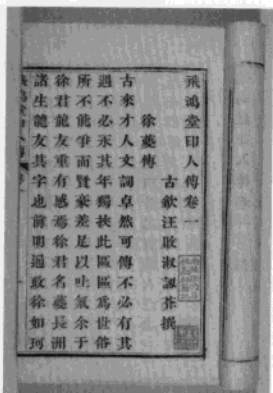 飛鴻堂印人傳卷一
古歙汪啟淑訒菴撰
徐夔傳
古來才人文詞卓然可傳不必有其
遇不必永其年獨挾此區區為世俗
所不能爭而賢豪差足以吐氣余于
徐君龍友重有感焉徐君名夔長洲
諸生龍友其字也前明通政徐如珂